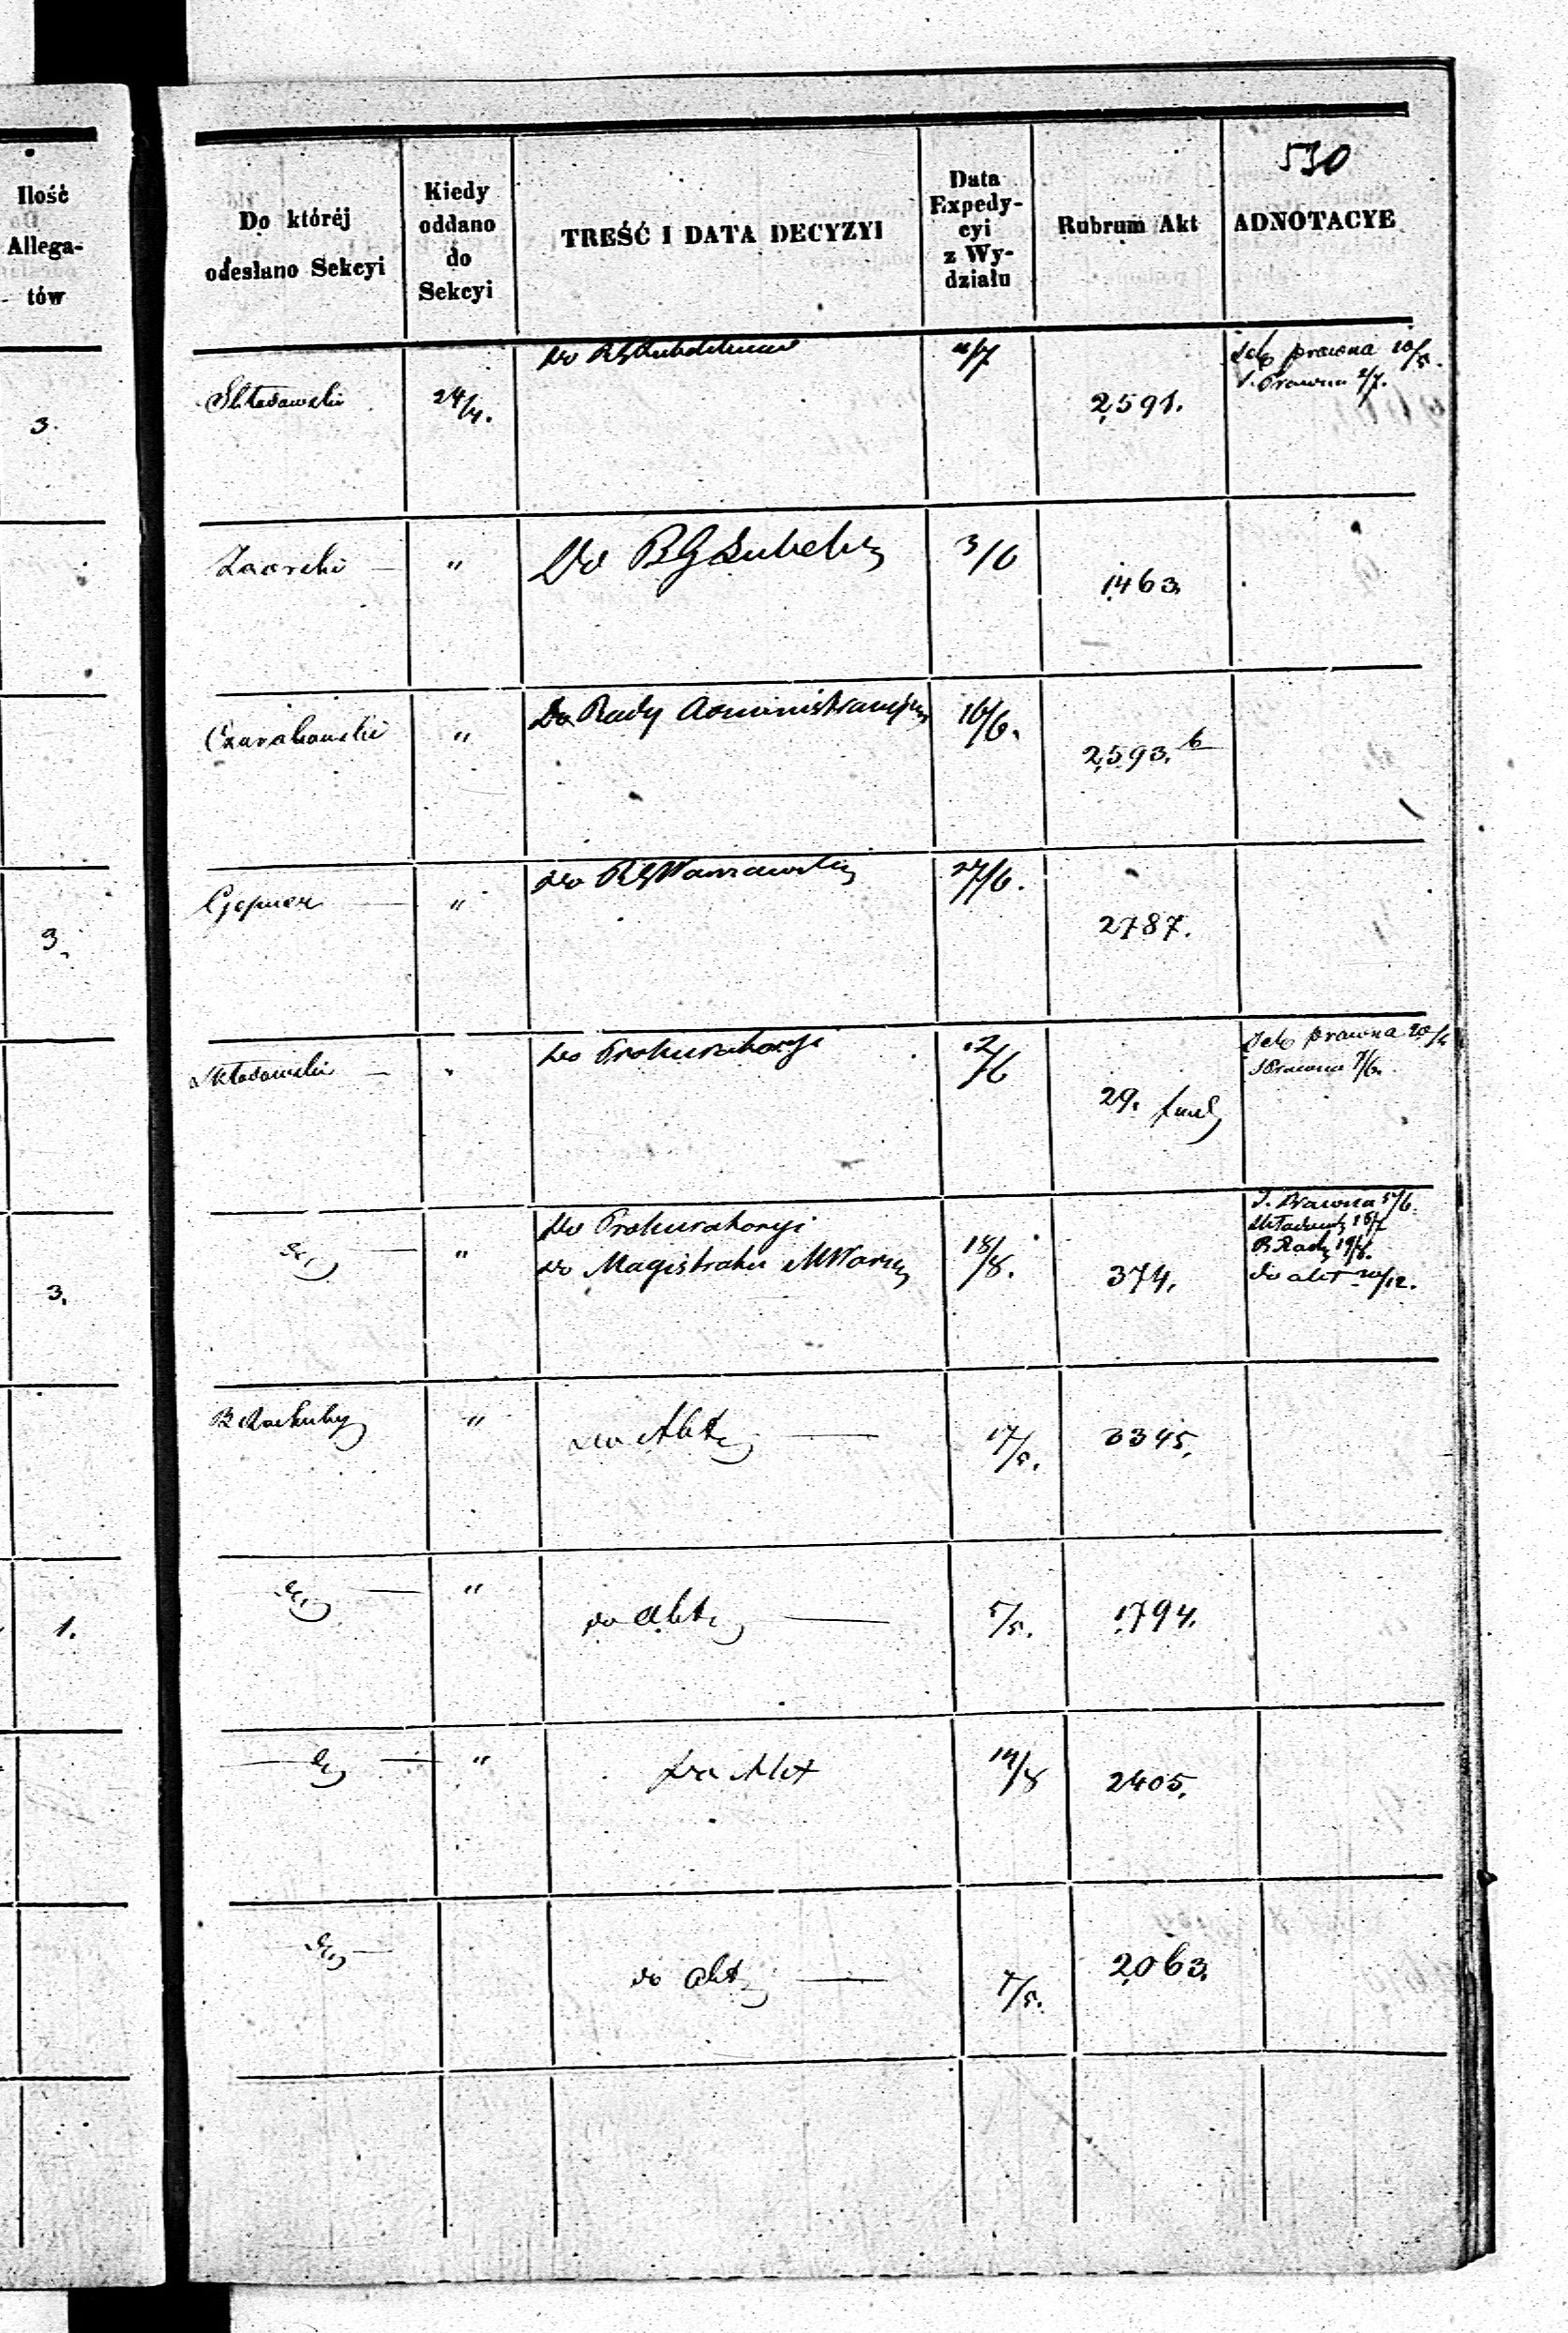 Ilość
Allega-
tów
3.
3.
3.
1.
530
Do któréj
odesłano Sekcyi
Kiedy
oddano
do
Sekcyi
TREŚĆ I DATA DECYZYI
Data
Expedy-
cyi
z Wy-
działu
Rubrum Akt
ADNOTACYE
Składowski 24/4. Do RG 2591. Sek prawna
S. Prawna 2/7.
" Do RG Lubelsk 3/6 1463.
" Do Rady Administracyjn 16/6. 2593. b
Gepner " do RG Warszawsk 27/6. 2787.
Składowski " do Prokuratoryi 12/6 29. Sek prawna
S Prawna 7/6.
" Do Prokuratoryi
do Magistratu M Warsz 18/8. 374. S. Prawna
do akt 20/12.
" do Akt 17/5. 3345.
" do akt 5/5. 1794.
" do Akt 14/8 2405.
do akt 7/5. 2063.